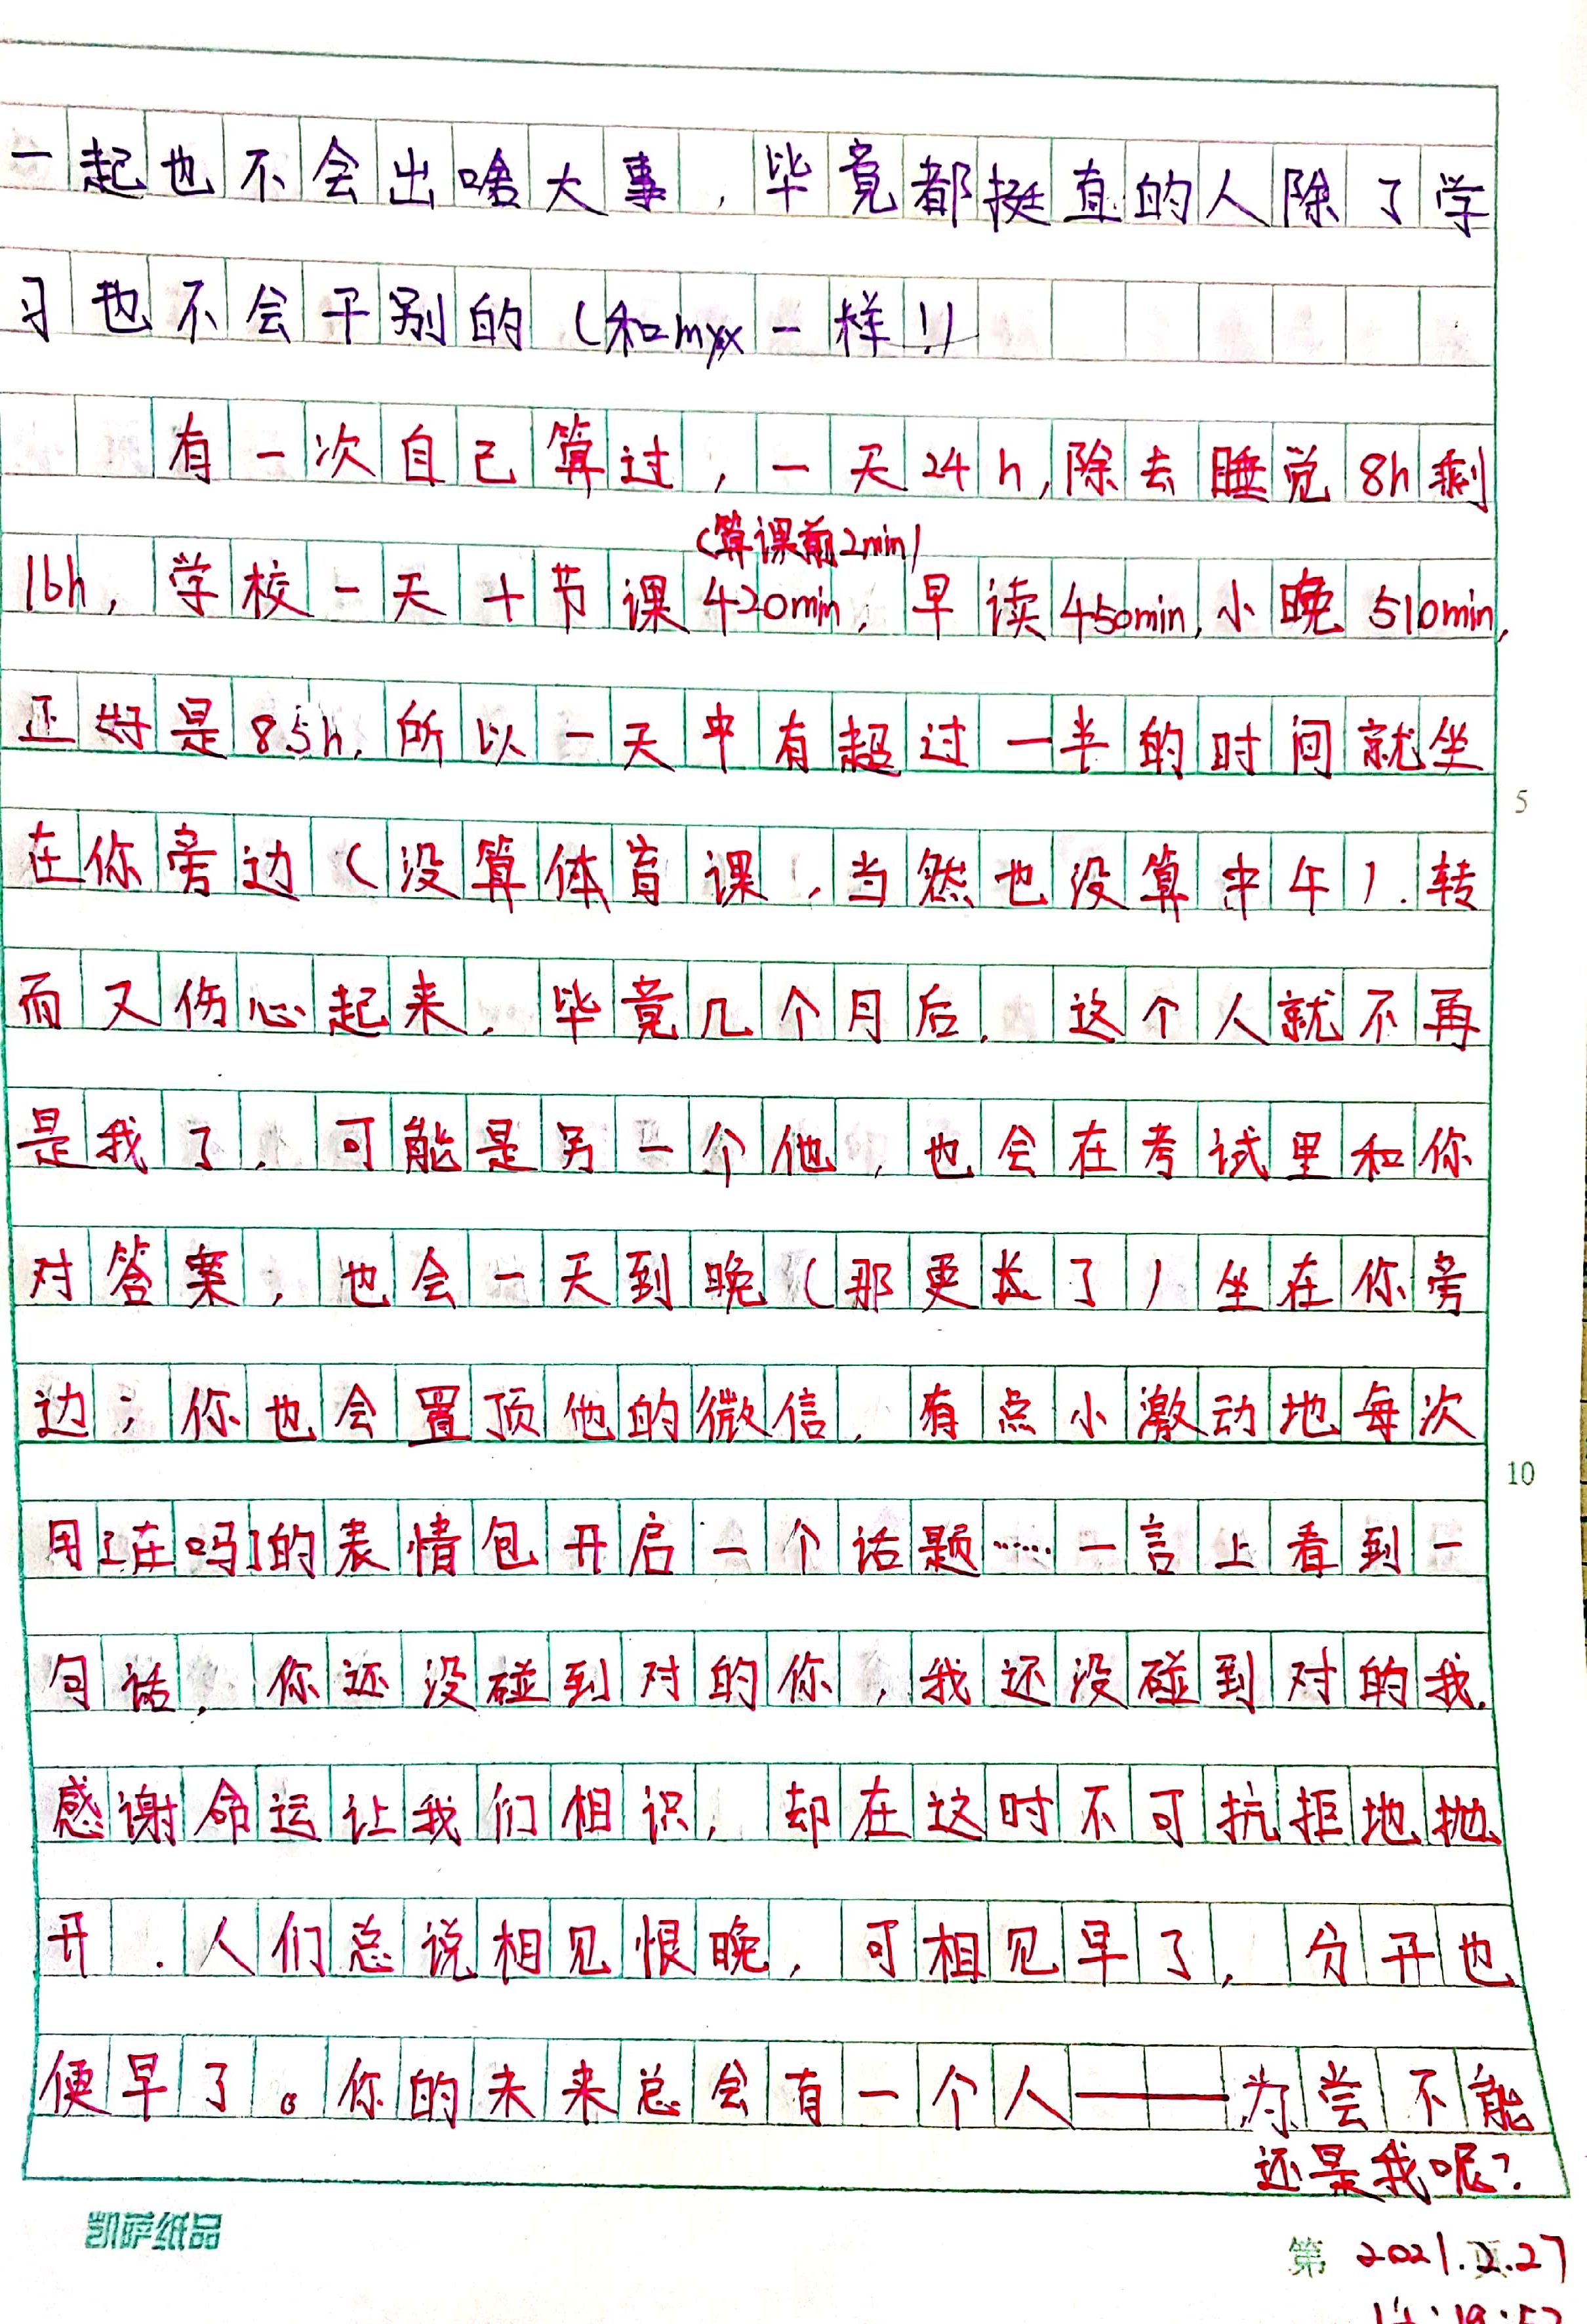 一起也不会出啥大事，毕竟都挺直的人除了学
习也不会干别的（和myx一样！）
有一次自己算过，一天24h，除去睡觉8h剩
（算课前2min）
16h，学校一天十节课420min，早读450min，小晚510min，
正好是8.5h，所以一天中有超过一半的时间就坐
在你旁边（没算体育课，当然也没算中午）．转
而又伤心起来，毕竟几个月后，这个人就不再
是我了．可能是另一个他，也会在考试里和你
对答案，也会一天到晚（那更长了）坐在你旁
边；你也会置顶他的微信，有点小激动地每次
用[在吗]的表情包开启一个话题……一言上看到一
句话，你还没碰到对的你，我还没碰到对的我．
感谢命运让我们相识，却在这时不可抗拒地抛
开．人们总说相见恨晚，可相见早了，分开也
便早了。你的未来总会有一个人——为尝不能
还是我呢？
5
10
凯萨纸品
第 2021.2.27 页